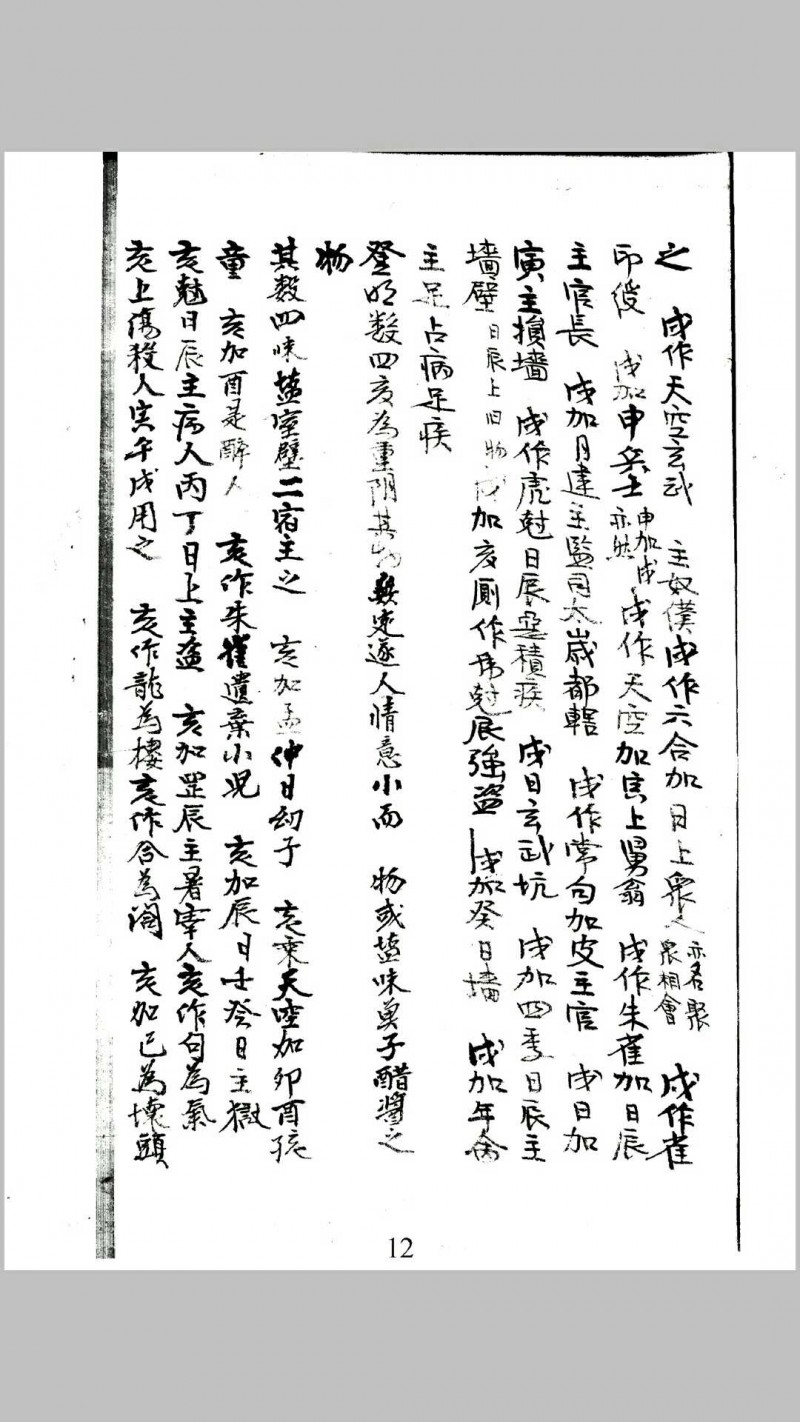 之　戌作天空玄武　主奴僕戌作六合加日上眾人亦名聚眾相會　戌作雀
印綬　戌加申兵士申加戌亦然　戌作天空加寅上舅翁　戌作朱雀加日辰
主官長　戌加月建主監司太歲都轄　戌作常句加皮主官　戌日加
寅主損墻　戌作虎尅日辰惡積疾　戌日玄武坑　戌加四季日辰主
墻壁日辰上旧物戌加亥廁作虎尅辰強盜　戌加癸日墻　戌加年命
主足占病足疾
登明数四亥為重阴其数定遂人情意小而　物或盐味魚子醋醬之
物
其数四味盐室壁二宿主之　亥加孟仲日幼子　亥乘天空加卯酉孩
童　亥加酉是醉人　亥作朱雀遺棄小児　亥加辰日壬癸日主獄
亥魁日辰主病人丙丁日上主盜　亥加罡辰主暑宰人亥作句為氣
亥上傷殺人寅午戌用之　亥作龍為樓亥作合為阁　亥加巳為壞頭
12